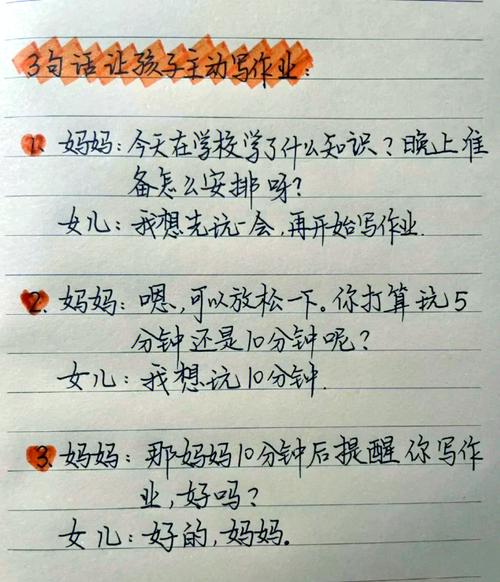 3句话让孩子主动写作业:
1. 妈妈:今天在学校学了什么知识?晚上准
备怎么安排呀?
女儿:我想先玩一会,再开始写作业.
2. 妈妈:嗯,可以放松一下。你打算玩5
分钟还是10分钟呢?
女儿:我想玩10分钟.
3. 妈妈:那妈妈10分钟后提醒你写作
业,好吗?
女儿:好的,妈妈。